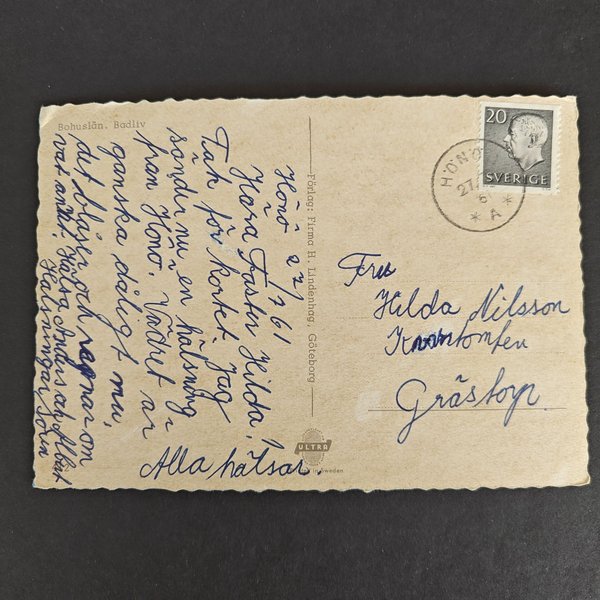 Bohuslän. Badliv
Hönö 27/7 61
Kära Faster Hilda!
Tak för kortet. Jag
sänder nu en hälsning
från Hönö. Vädret är
ganska dåligt nu,
det blåser och regnar om
vart annat. Hälsa Anders och Albert
Hälsningar
Alla hälsar.
Förlag: Firma H. Lindenhag, Göteborg
ULTRA
Sweden
20
SVERIGE
HÖNÖ
27
6
* A *
Fru
Hilda Nilsson
Grästorp.